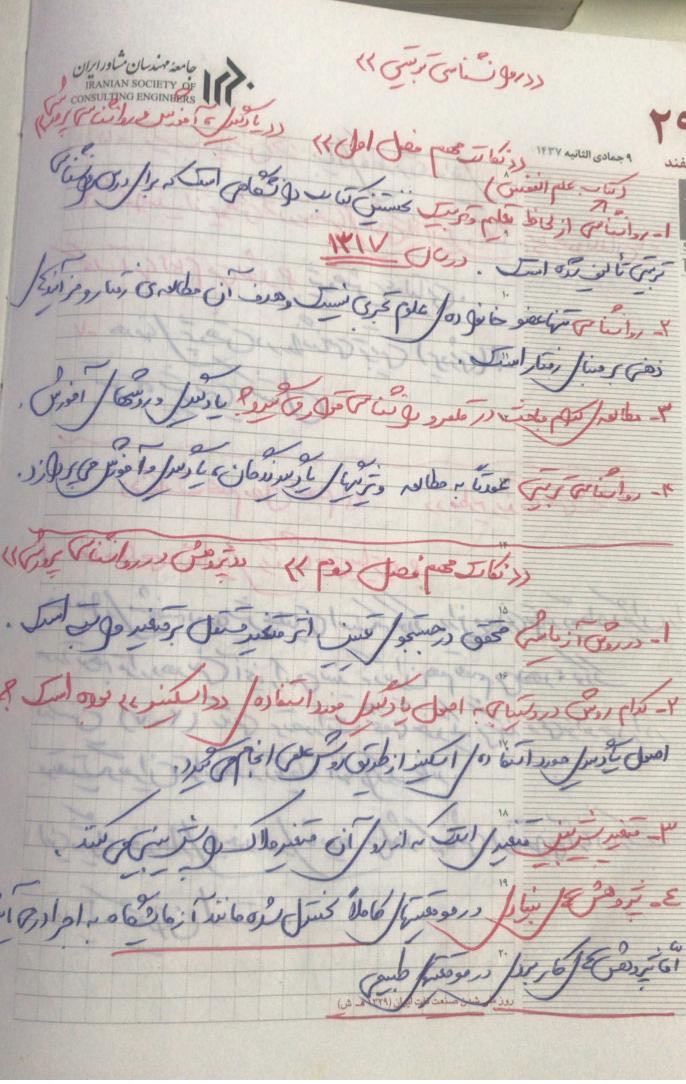 «روانشناسی تربیتی»
جامعه مهندسان مشاور ایران
IRANIAN SOCIETY OF
CONSULTING ENGINEERS
«یادگیری، آموزش و روانشناسی پرورشی»
۲۹
«نکات مهم فصل اول»
۹ جمادی الثانیه ۱۴۳۷
فند
(کتاب علم النفس)
۱- روانشناسی از لحاظ تعلیم و تربیت نخستین کتاب دانشگاهی است که برای درس روانشناسی
تربیتی تألیف شده است. در سال ۱۳۱۷
۲- روانشناسی تنها عضو خانواده‌ی علوم تجربی نیست و هدف آن مطالعه‌ی رفتار و فرآیندهای
ذهنی بر مبنای رفتار است.
۳- مطالعه‌ی کدام مبحث در قلمرو روانشناسی قرار می‌گیرد؟ یادگیری و روشهای آموزش.
۴- روانشناسی تربیتی عمدتاً به مطالعه ویژگیهای یادگیرندگان، یادگیری و آموزش می‌پردازد.
«نکات مهم فصل دوم» «پژوهش در روانشناسی پرورشی»
۱- در روش آزمایشی محقق در جستجوی تعیین اثر متغیر مستقل بر متغیر وابسته است.
۲- کدام روش در دستیابی به اصول یادگیری مورد استفاده‌ی «اسکینر» بوده است؟
اصول یادگیری مورد استفاده‌ی اسکینر از طریق روش علمی انجام می‌گیرد.
۳- متغیر پیش‌بین متغیری است که از روی آن متغیر ملاک را پیش‌بینی می‌کنند.
۴- پژوهش‌های بنیادی در موقعیتهای کاملاً کنترل شده مانند آزمایشگاه به اجرا در می‌آیند
امّا پژوهش‌های کاربردی در موقعیتهای طبیعی
روز ملی شدن صنعت نفت ایران (۱۳۲۹ هـ ش)